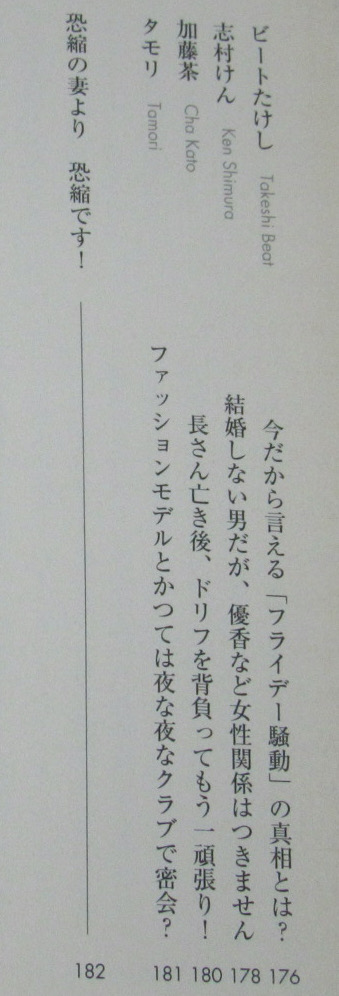 ビートたけし Takeshi Beat 今だから言える「フライデー騒動」の真相とは？ 176
志村けん Ken Shimura 結婚しない男だが、優香など女性関係はつきません 178
加藤茶 Cha Kato 長さん亡き後、ドリフを背負ってもう一頑張り！ 180
タモリ Tamori ファッションモデルとかつては夜な夜なクラブで密会？ 181
恐縮の妻より 恐縮です！ 182